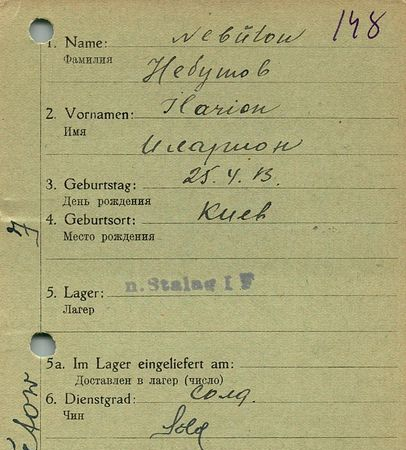 148
1. Name: Nebŭtow
Фамилия
Небутов
2. Vornamen: Ilarion
Имя
Иларион
3. Geburtstag: 25.4.13.
День рождения
4. Geburtsort: Киев
Место рождения
5. Lager: n. Stalag I F
Лагер
5a. Im Lager eingeliefert am:
Доставлен в лагер (число)
6. Dienstgrad: солд.
Чин
Sold